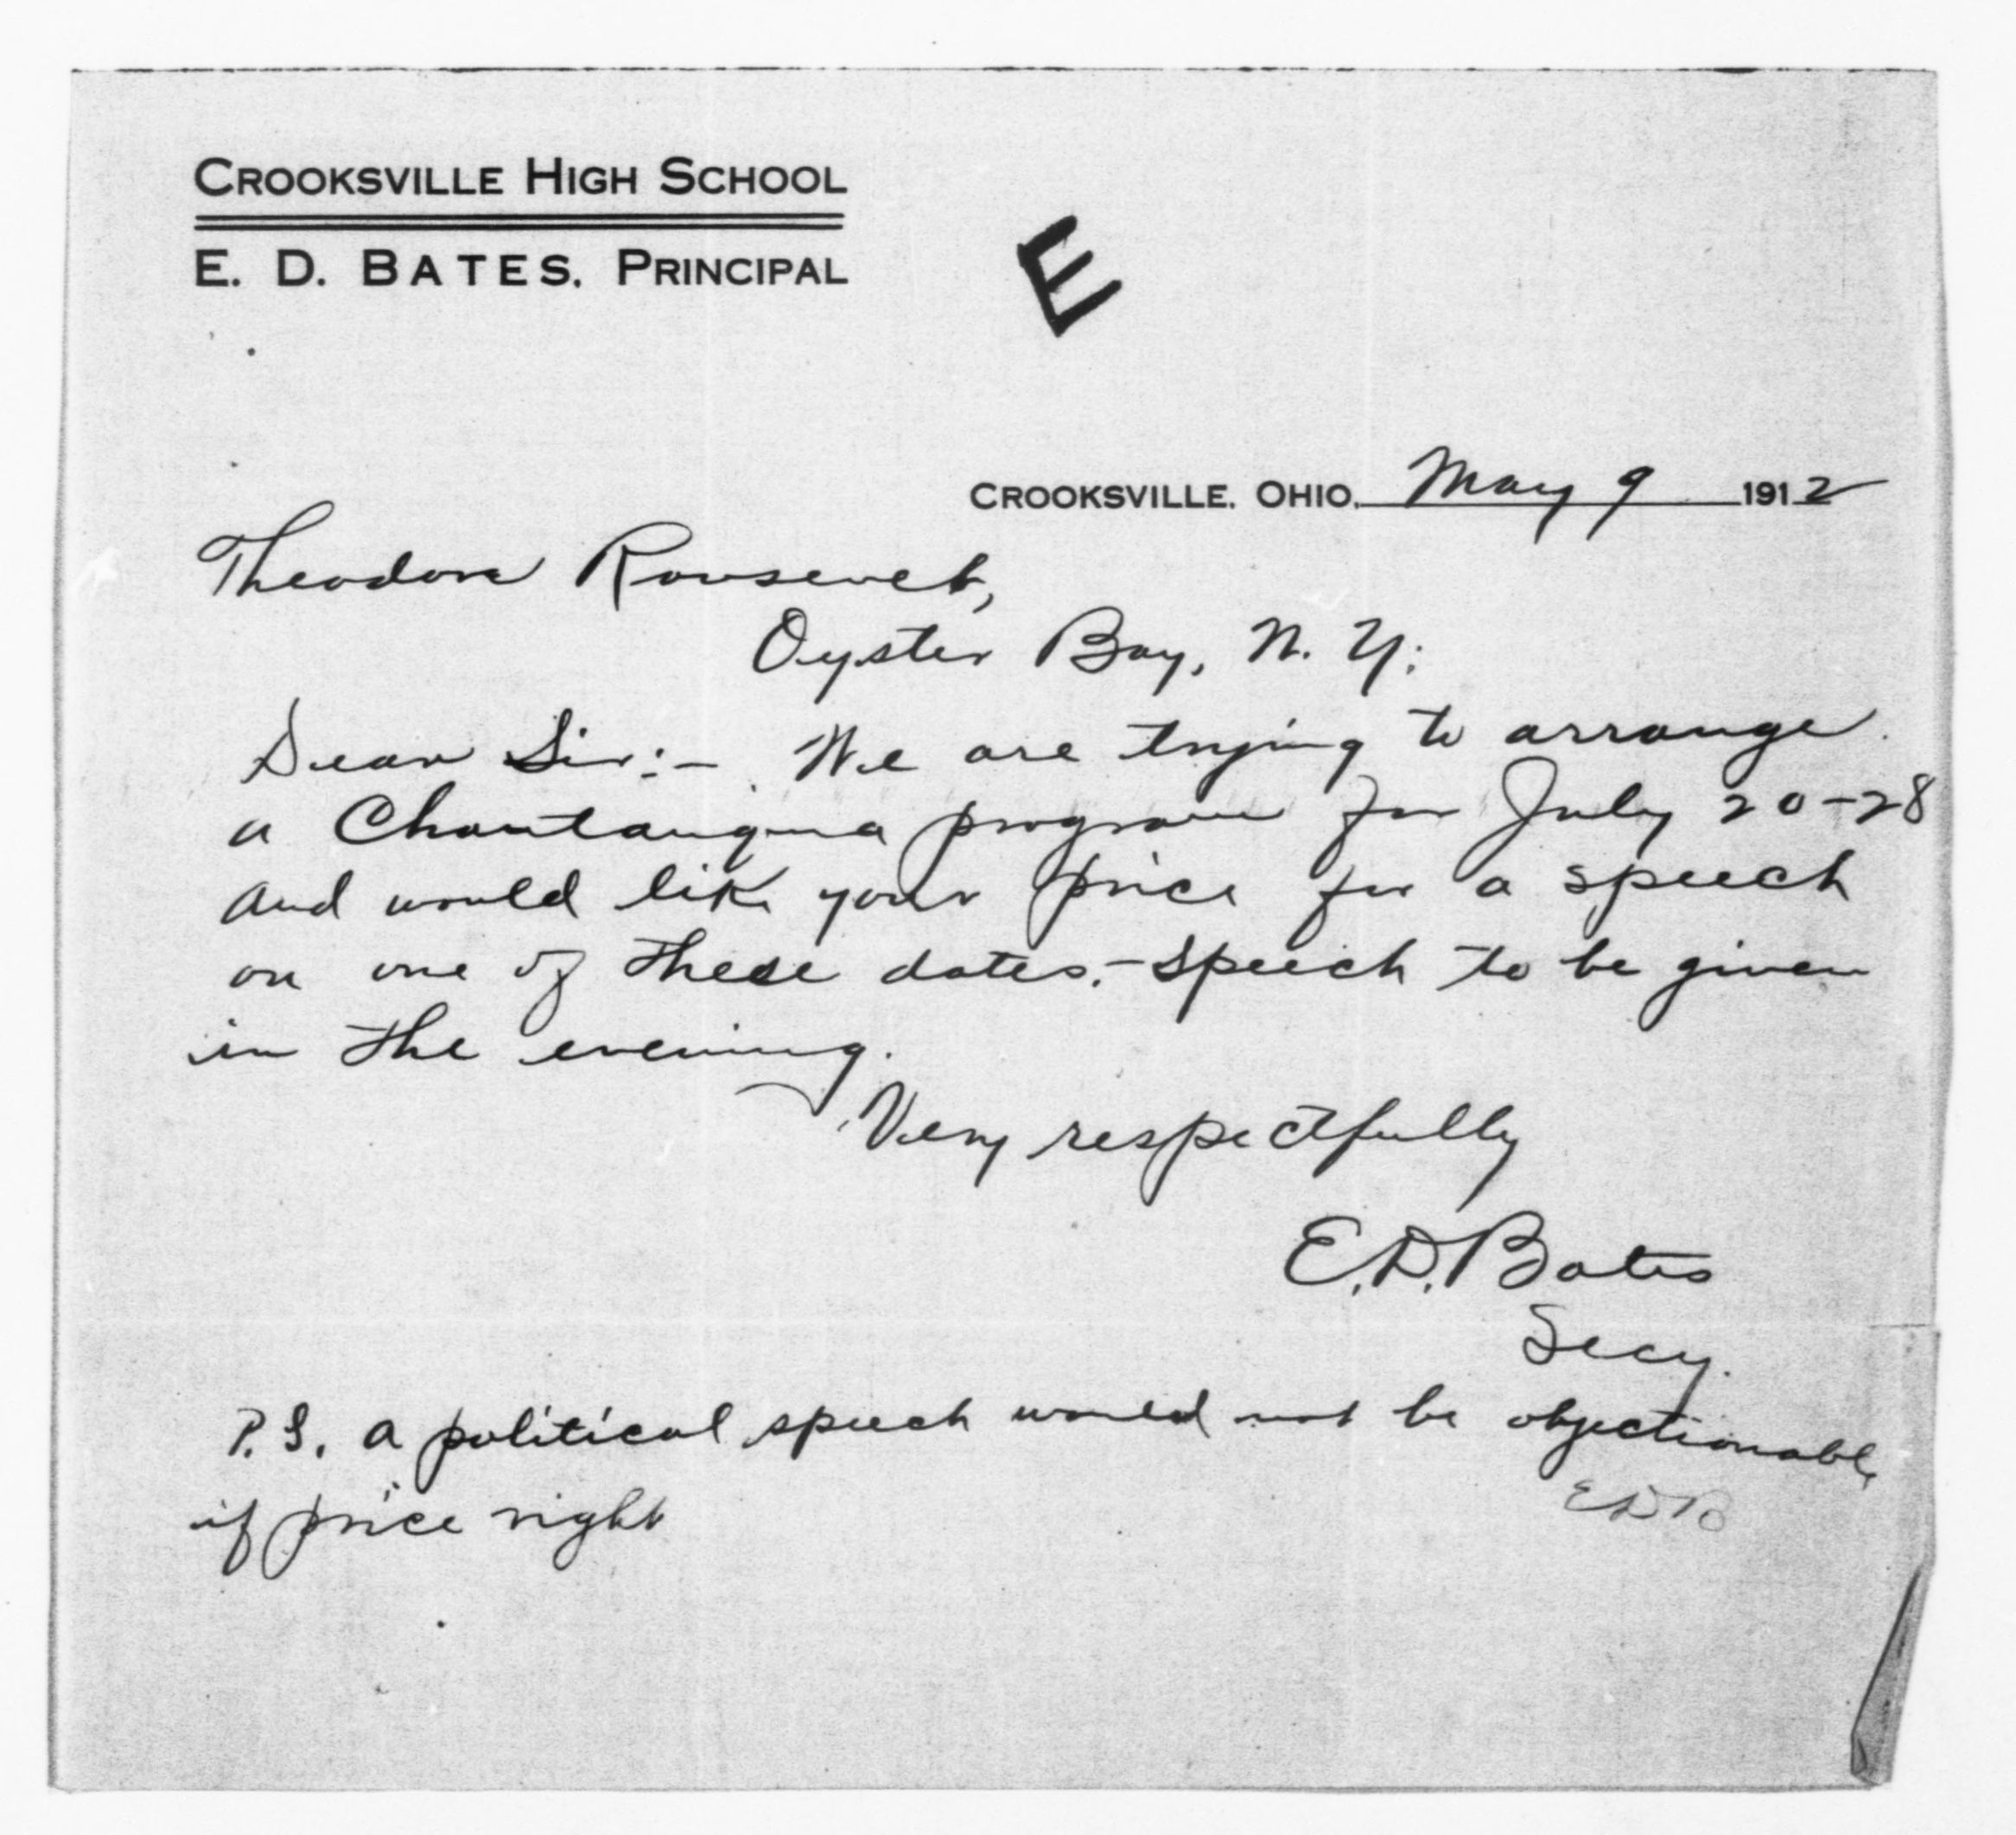 CROOKSVILLE HIGH SCHOOL
E. D. BATES, PRINCIPAL
E
CROOKSVILLE, OHIO, May 9 1912
Theodore Roosevelt,
Oyster Bay, N. Y:
Dear Sir:- We are trying to arrange
a Chautauqua program for July 20-28
and would like your price for a speech
on one of these dates.-Speech to be given
in the evening.
Very respectfully
E.D. Bates
Secy.
P.S. A political speech would not be objectionable
EDB
if price right